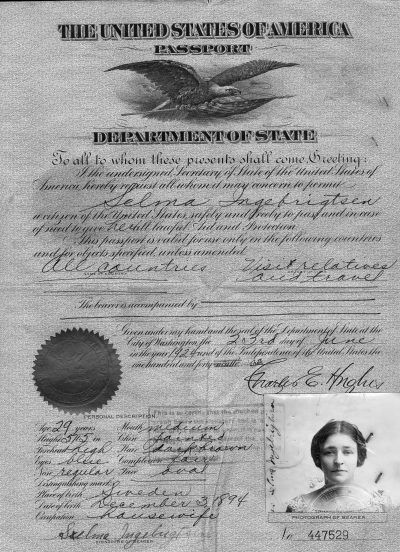 THE UNITED STATES OF AMERICA
PASSPORT
DEPARTMENT OF STATE
To all to whom these presents shall come, Greeting:
I the undersigned, Secretary of State of the United States of
America, hereby request all whom it may concern to permit
Selma Ingebrigtsen
a citizen of the United States, safely and freely to pass and in case
of need to give her all lawful Aid and Protection
This passport is valid for use only in the following countries
and for objects specified, unless amended
All countries Visit relatives
and travel
The bearer is accompanied by
Given under my hand and the seal of the Department of State at the
City of Washington, the 23rd day of June
in the year 1924 and of the Independence of the United States the
one hundred and forty
Charles E. Hughes
PERSONAL DESCRIPTION
Age 29 years Mouth medium
Height Chin pointed
Forehead high Hair dark brown
Eyes blue Complexion fair
Nose regular Face oval
Distinguishing marks
Place of birth Sweden
Date of birth December 3, 1894
Occupation housewife
Selma
SIGNATURE OF BEARER
PHOTOGRAPH OF BEARER
No 447529